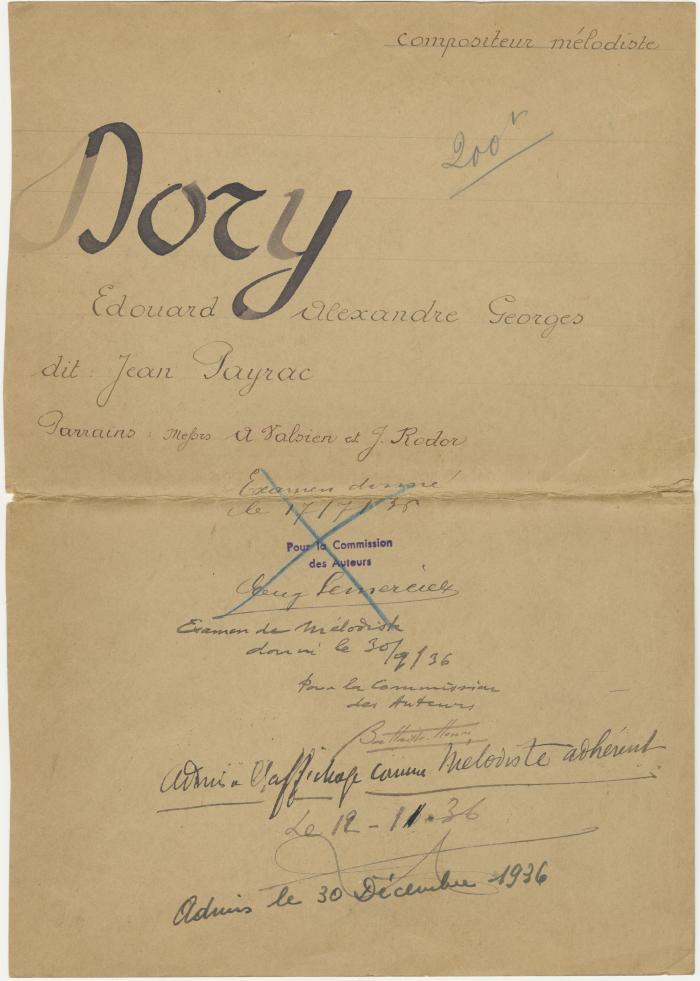 compositeur mélodiste
200
Dory
Edouard Alexandre Georges
dit : Jean Payrac
Parrains : Messrs A Valsien et J. Rodor
Examen donné
le 17/7/36
Pour la Commission
des Auteurs
Eug Lemercier
Examen de Mélodiste
donné le 30/9/36
Pour la Commission
des Auteurs
Admis à l'affichage comme Mélodiste adhérent
Le 12-11.36
Admis le 30 Décembre 1936